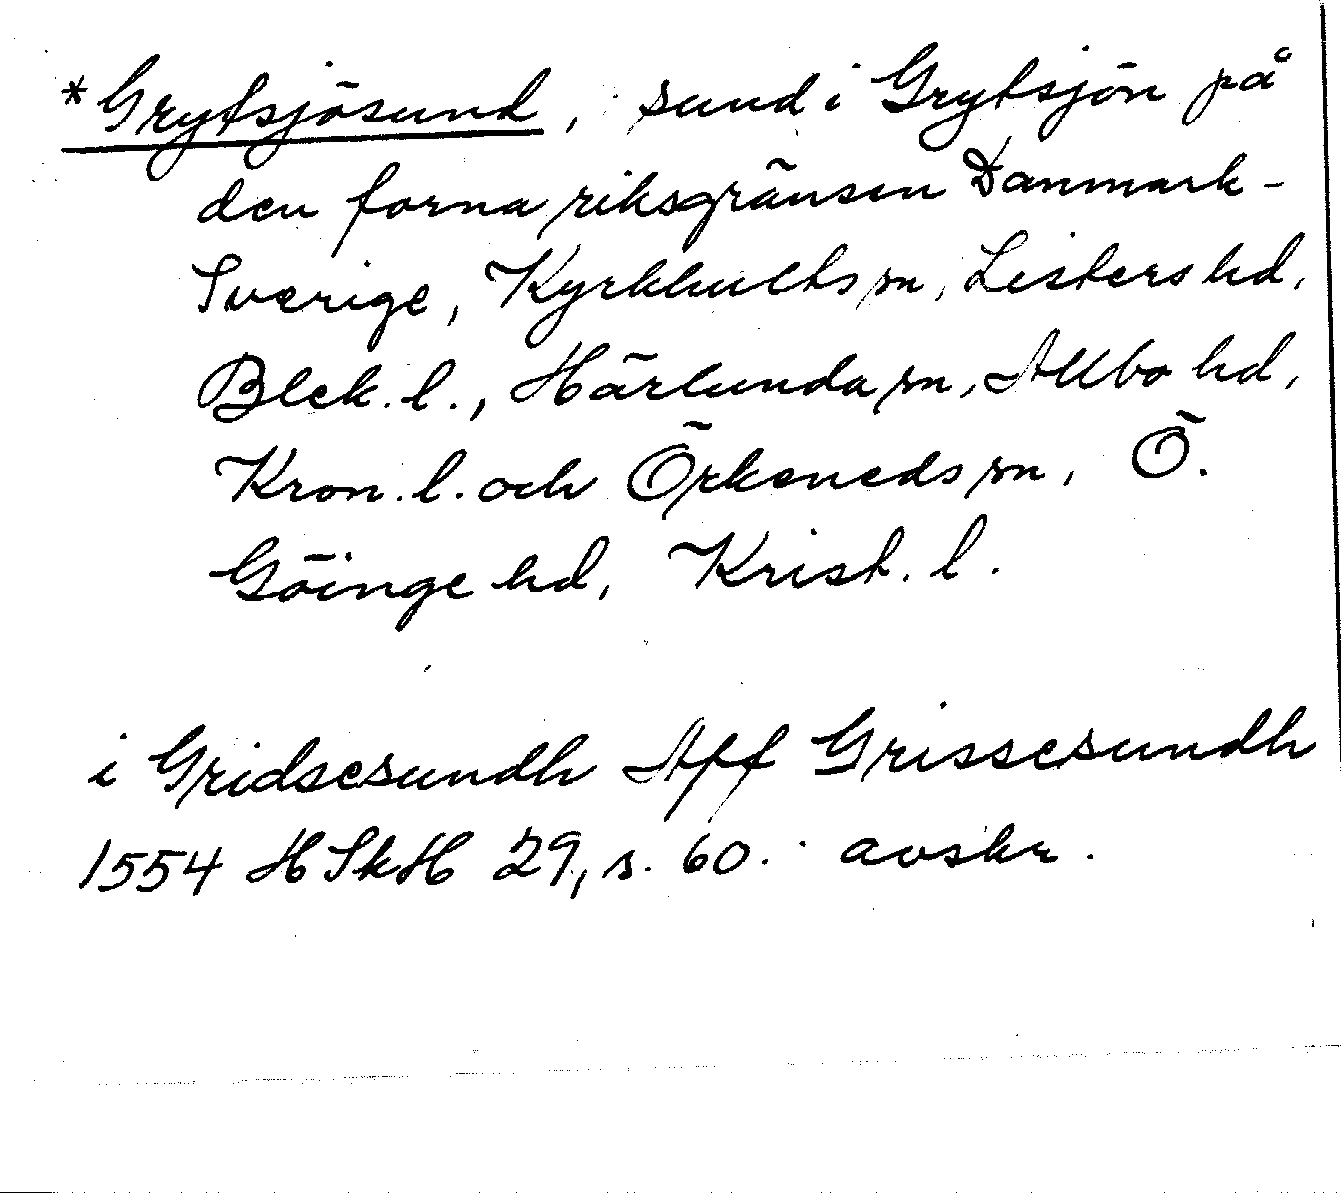 *Grytsjösund, sund i Grytsjön på
den forna riksgränsen Danmark-
Sverige, Kyrkhults sn, Listers hd,
Blek. l., Härlunda sn, Allbo hd,
Kron. l. och Örkeneds sn, Ö.
Göinge hd, Krist. l.
i Gridsesundh Aff Grissesundh
1554 HSkH 29, s. 60. avskr.